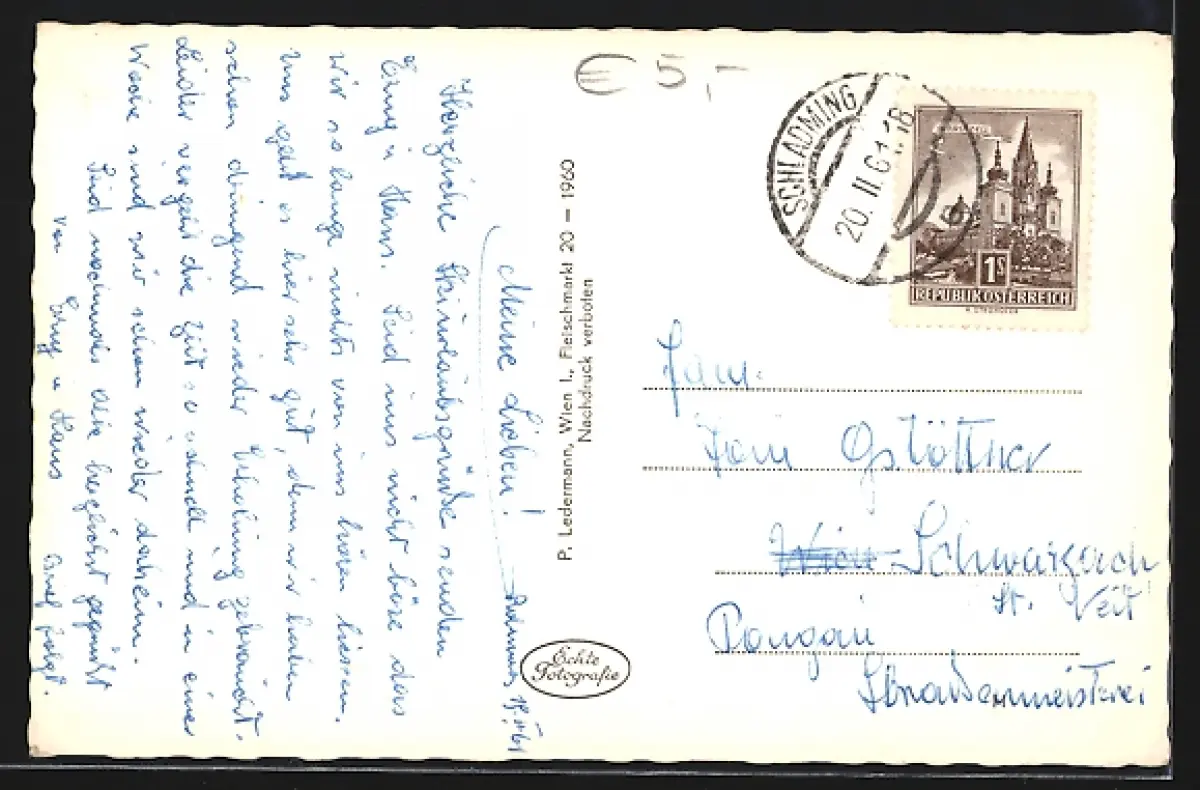 € 5,-
SCHLADMING
20. II. 61. 18
1S
REPUBLIK ÖSTERREICH
Fam.
Toni Gstöttner
Wien Schwarzach
St. Veit
Pongau
Straßenmeisterei
P. Ledermann, Wien I., Fleischmarkt 20 – 1960
Nachdruck verboten
Echte
Fotografie
Meine Lieben!
Herzliche Skiurlaubsgrüße senden
Erny u Hans. Seid uns nicht böse das
wir so lange nichts von uns hören liesen.
Uns geht es hier sehr gut, denn wir haben
schon dringend wieder Erholung gebraucht.
Leider vergeht die Zeit so schnell und in einer
Woche sind wir schon wieder daheim.
Seid nochmals allerherzlichst gegrüßt
von Erny u Hans
Brief folgt.